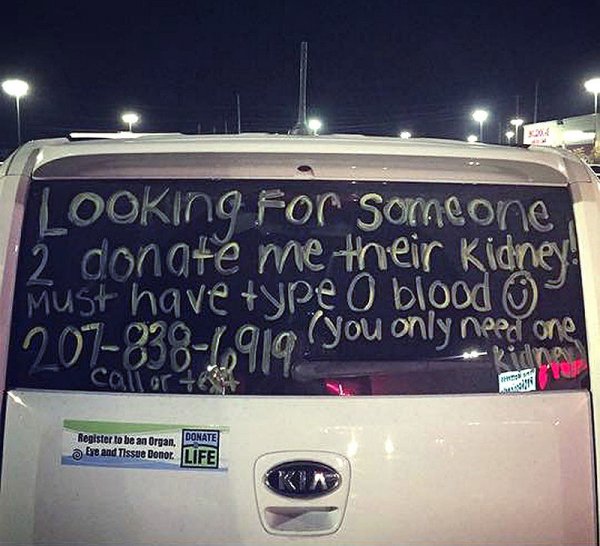 Looking For someone
2 donate me their kidney!
Must have type O blood ☺
207-838-6919 (you only need one
call or text kidney)
Register to be an Organ,
Eye and Tissue Donor.
DONATE
LIFE
KIA